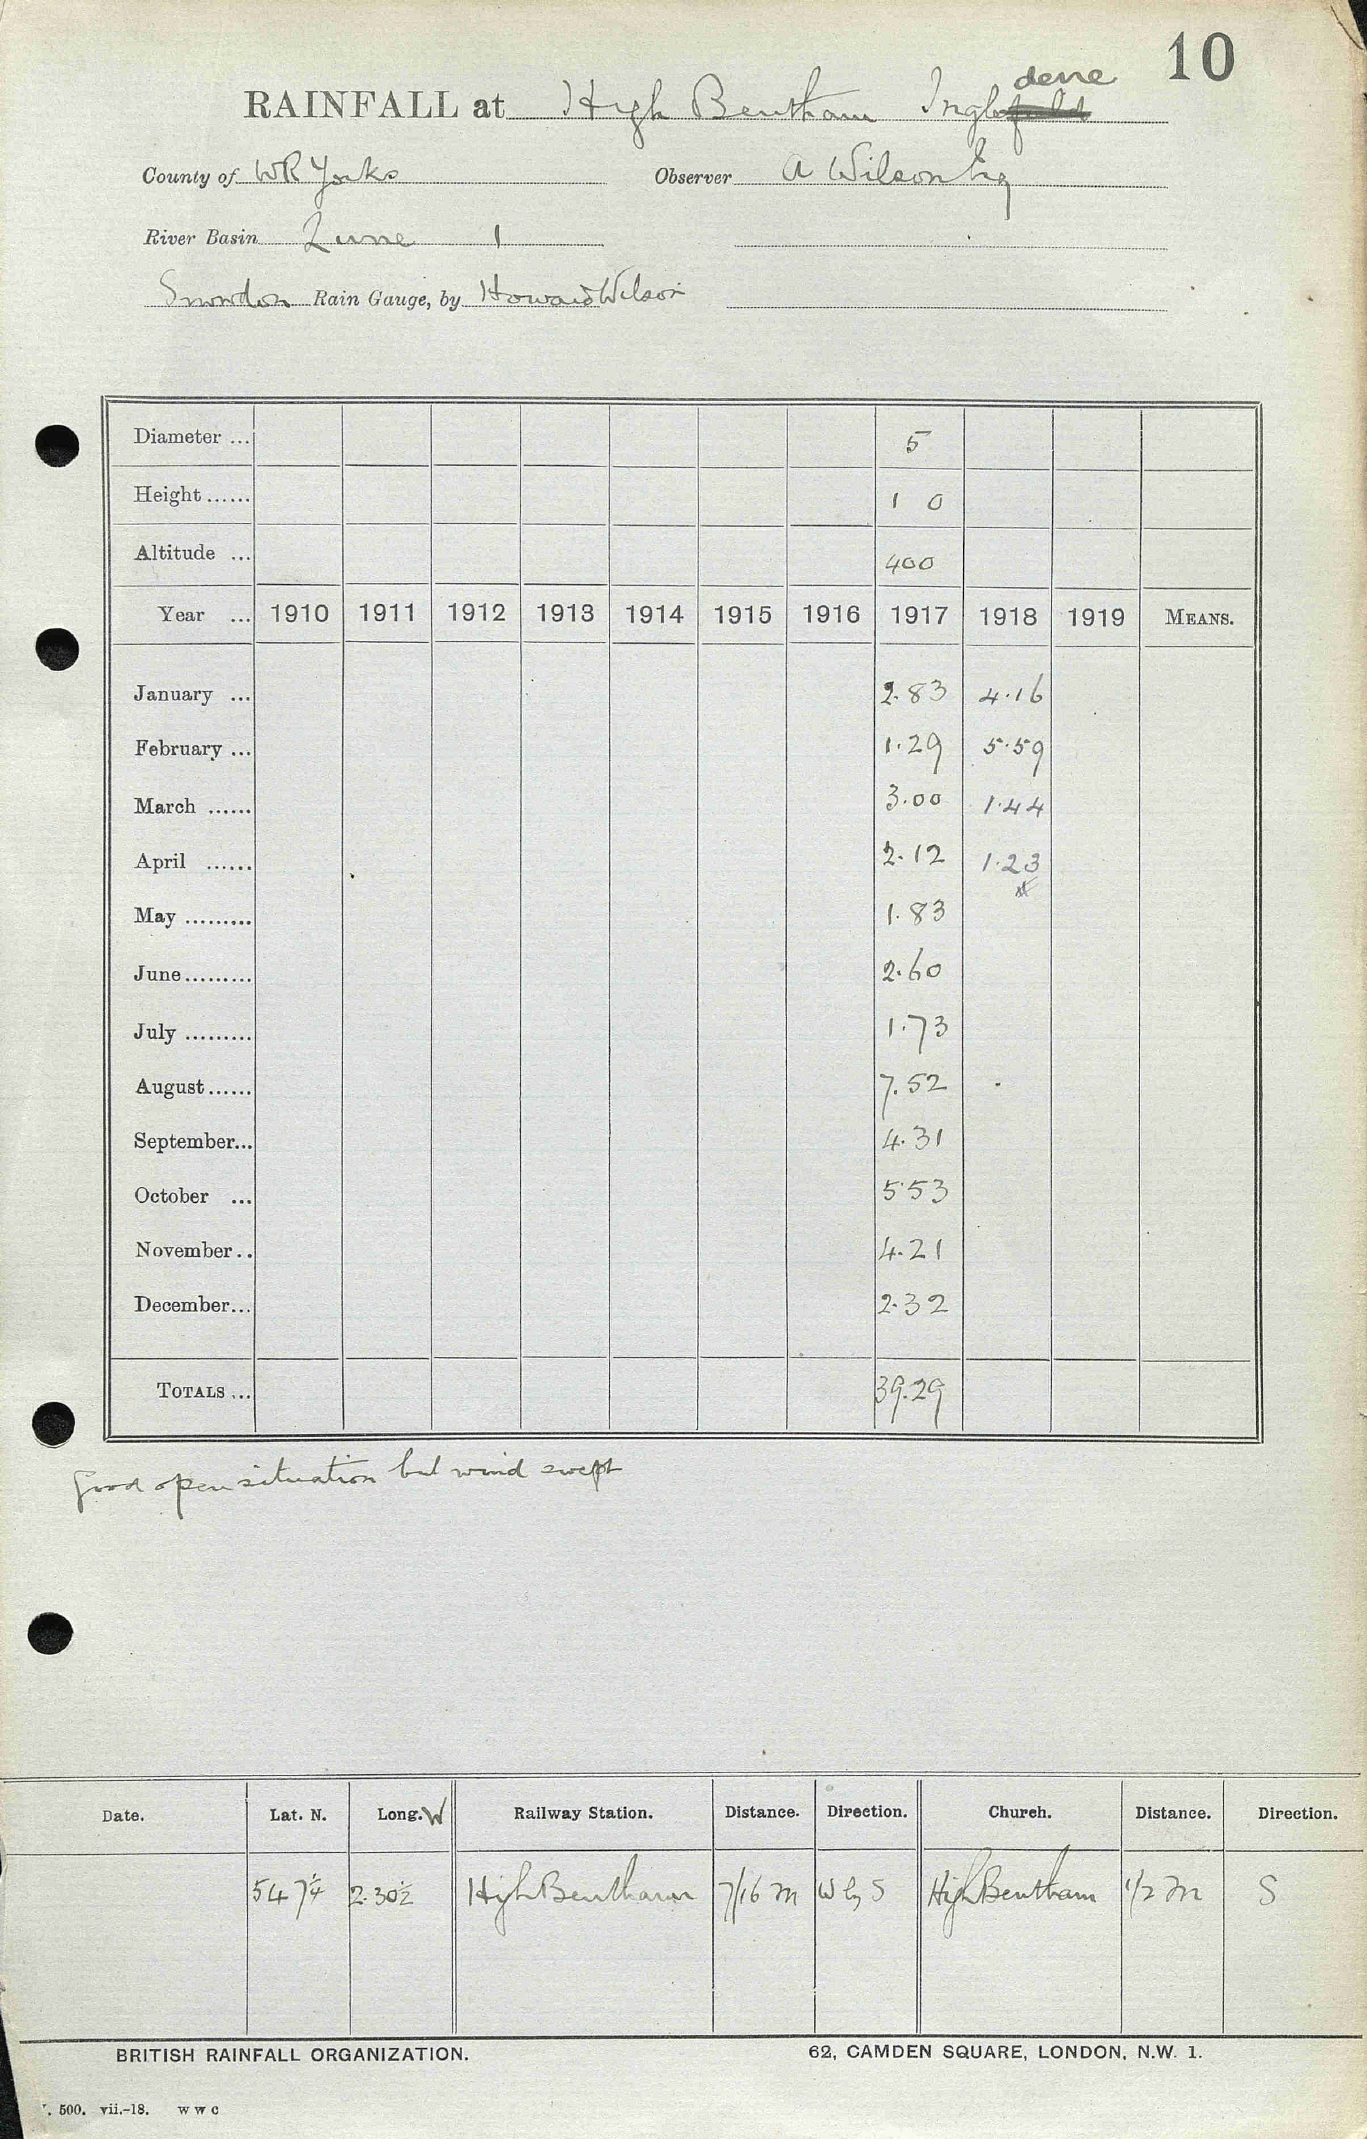 10
RAINFALL at High Bentham Ingle dene
County of WR Yorks Observer A Wilson Esq
River Basin Lune 1
Snowdon Rain Gauge, by Howard Wilson
Diameter ... 5
Height ...... 1 0
Altitude ... 400
Year ... 1910 1911 1912 1913 1914 1915 1916 1917 1918 1919 MEANS.
January ... 2.83 4.16
February ... 1.29 5.59
March ...... 3.00 1.44
April ...... 2.12 1.23
May ......... 1.83
June ......... 2.60
July ......... 1.73
August ...... 7.52
September... 4.31
October ... 5.53
November .. 4.21
December... 2.32
TOTALS ... 39.29
Good open situation but wind swept
Date. Lat. N. Long. W Railway Station. Distance. Direction. Church. Distance. Direction.
54 7¼ 2.30½ High Bentham 7/16 m W by S High Bentham 1/2 m S
BRITISH RAINFALL ORGANIZATION. 62, CAMDEN SQUARE, LONDON, N.W. 1.
. 500. vii.-18. W W C